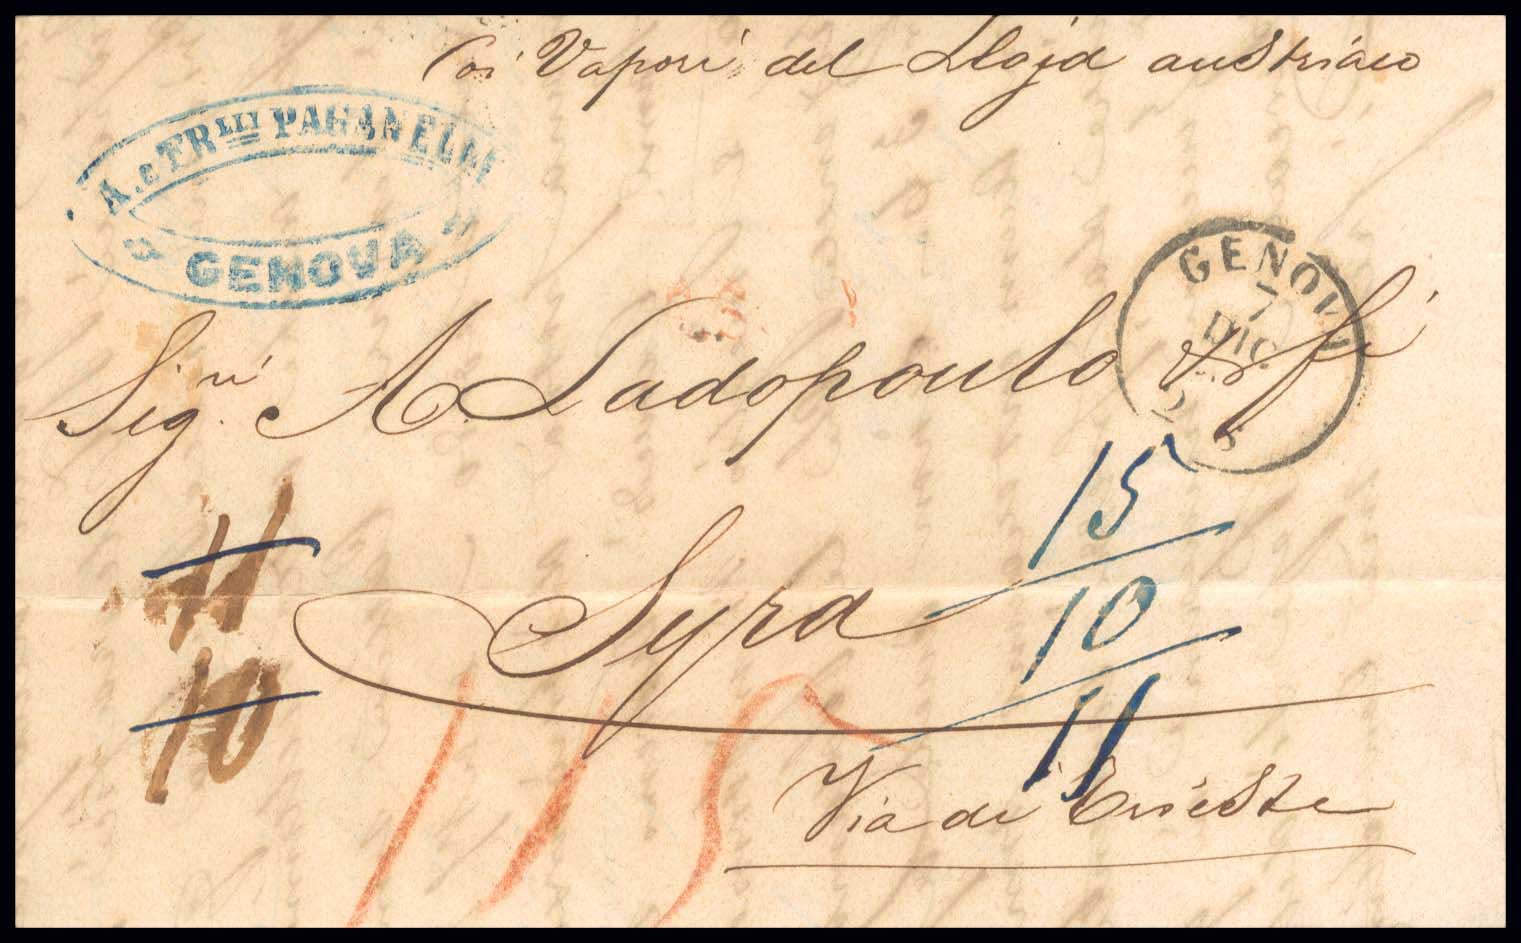 Coi Vapori del Lloyd austriaco
A. e FR.lli PAGANELLI
GENOVA
GENOVA
7
DIC.
Sig.ri A Ladopoulo & fi
15
10
11
11
10
Syra
115
Via di Trieste